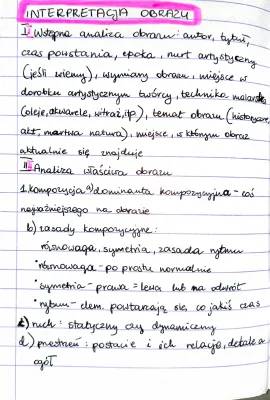 INTERPRETACJA OBRAZU
I Wstępna analiza obrazu: autor, tytuł,
czas powstania, epoka, nurt artystyczny
(jeśli wiemy), wymiary obrazu, miejsce w
dorobku artystycznym twórcy, technika malarska
(oleje, akwarele, witraż, itp), temat obrazu (historyczny,
akt, martwa natura), miejsce, w którym obraz
aktualnie się znajduje
II Analiza właściwa obrazu
1. kompozycja a) dominanta kompozycyjna - coś
najważniejszego na obrazie
b) zasady kompozycyjne:
równowaga, symetria, zasada rytmu
• równowaga - po prostu normalnie
• symetria - prawa = lewa lub na odwrót
• rytm - elem. powtarzają się, co jakiś czas
c) ruch: statyczny czy dynamiczny
d) przestrzeń: postacie i ich relacje, detale a
ogół